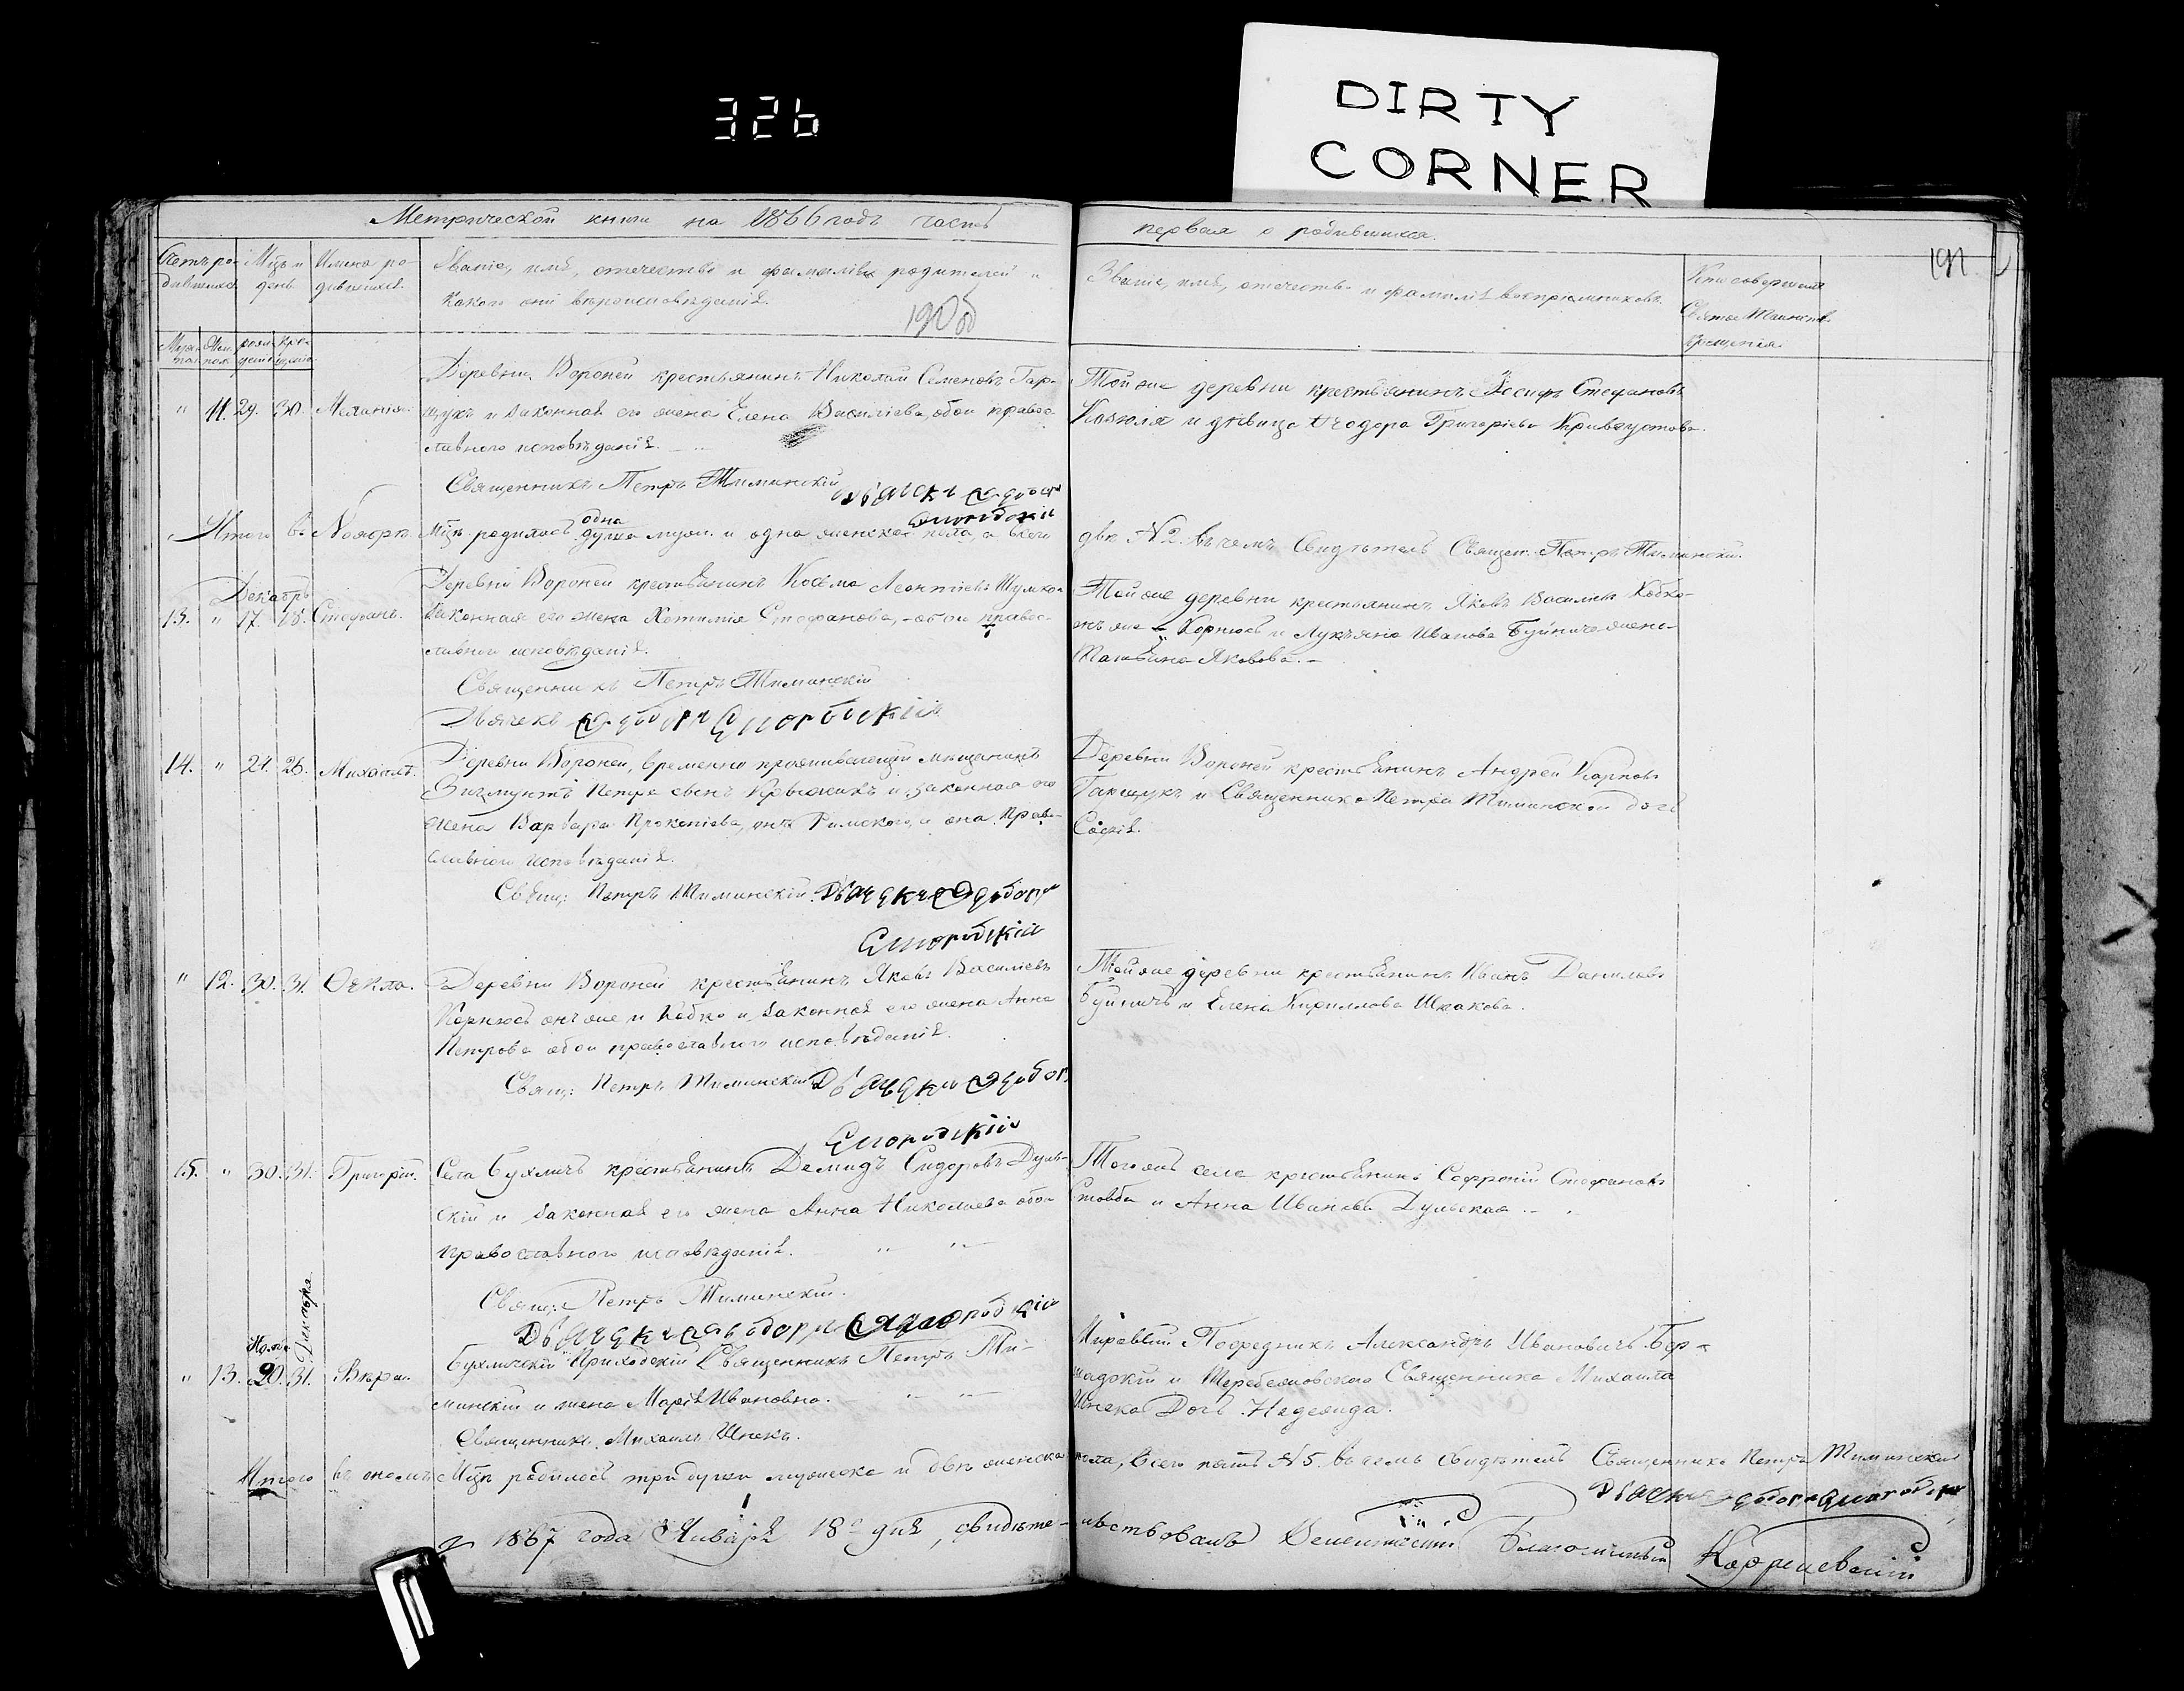 326
DIRTY
CORNER
Метрической книги на 1866 годъ часть
первая о родившихся.
191
Счетъ ро-
дившихся
Мцъ и
день
Имена ро-
дившихся.
Званіе, имя, отечество и фамилія родителей и
какого они вѣроисповѣданія.
190об
Званіе, имя, отечество и фамилія воспріемниковъ.
Кто совершалъ
Святое Таинство
крещенія.
" 11. 29. 30. Меланія.
Деревни Вороней крестьянинъ Николай Семеновъ Гар-
щукъ и законная его жена Елена Василіева, обои правос-
лавного исповѣданія.
Священникъ Петръ Тиминскій
Той же деревни крестьянинъ Іосифъ Стефановъ
и дѣвица Ѳеодора Григоріева
Итого въ Ноябрѣ Мцѣ родилось одна душа муж. и одна женска пола, а всего
двѣ №2. въ чемъ свидѣтель Священ. Петръ Тиминскій.
Декабрь
13. " 17. 18. Стефанъ.
Деревни Вороней крестьянинъ Косьма Леонтіевъ
законная его жена Стефанова, обои правос-
лавного исповѣданія.
Священникъ Петръ Тиминскій
Дьячекъ Ѳедоръ
Той же деревни крестьянинъ Яковъ Василіевъ Кобко
онъ же и Корнюсь и Лукъяна Иванова Буйнича жена
Татьяна Яковова.
14. " 21. 26. Михаилъ.
Деревни Вороней, временно проживающій мѣщанинъ
Зигмунтъ Петра сынъ Крыжикъ и законная его
жена Варвара Прокопіева, онъ Римского, а она Право-
славного исповѣданія.
Свящ: Петръ Тиминскій. Дьячекъ Ѳедоръ
Деревни Вороней крестьянинъ Андрей Карповъ
Гарщукъ и Священника Петра Тиминского дочь
Софія.
" 12. 30. 31. Ѳекла.
Деревни Вороней крестьянинъ Яковъ Василіевъ
Корнюсь онъ же и Кобко и законная его жена Анна
Петрова обои православного исповѣданія.
Свящ: Петръ Тиминскій Дьячекъ Ѳедоръ
Той же деревни крестьянинъ Иванъ Даниловъ
Буйничъ и Елена Кириллова
15. " 30. 31. Григорій.
Села Бухличъ крестьянинъ Демидъ Сидоровъ Дуль-
скій и законная его жена Анна Николаева обои
православного исповѣданія. " "
Свящ: Петръ Тиминскій.
Того же села крестьянинъ Софроній Стефановъ
Стовба и Анна Иванова Дульская.
Нояб. Декабря
" 13. 20. 31. Вѣра.
Бухличскій Приходскій Священникъ Петръ Ти-
минскій и жена Марія Ивановна. " "
Священникъ Михаилъ
Мировый Посредникъ Александръ Ивановичъ Бер-
и Теребежовского Священника Михаила
дочь Надежда.
Итого въ ономъ Мцѣ родилось три души мужеска и двѣ женска
пола, всего пять №5. въ чемъ свидѣтель Священникъ Петръ Тиминскій
1867 года Января 18 дня, свидѣте-
льствовалъ Благочинный